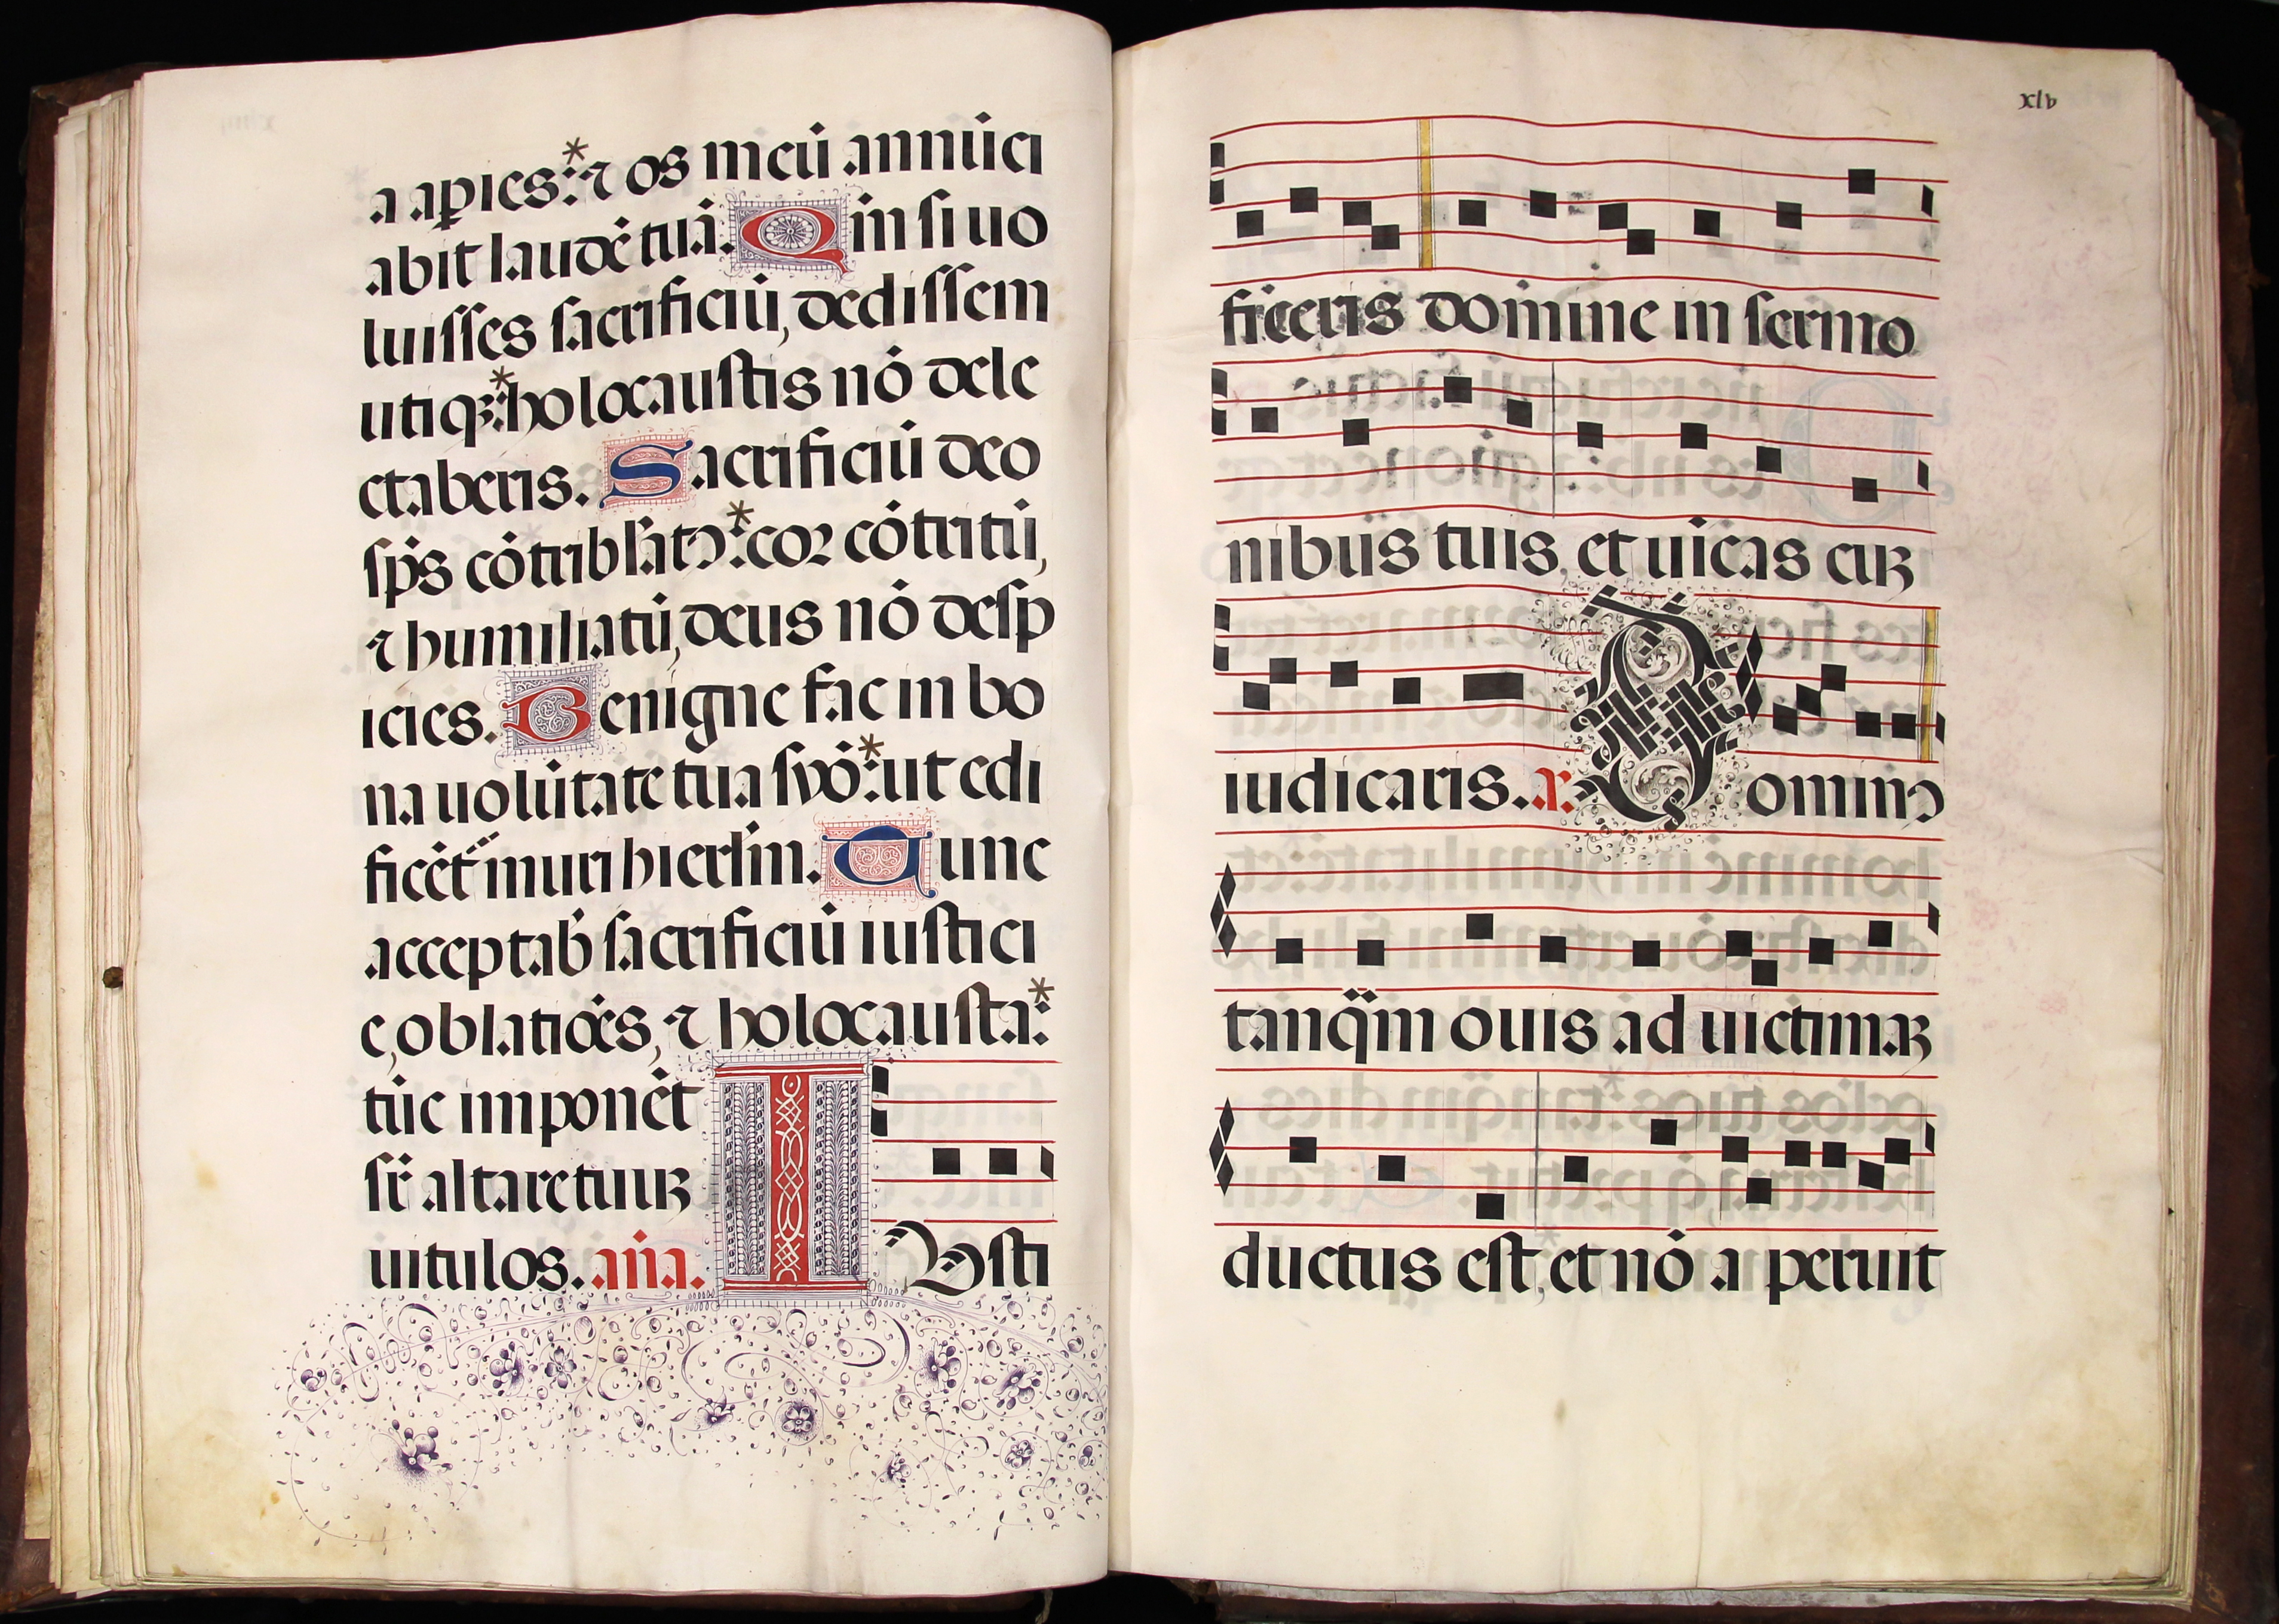 a aꝑies: * ⁊ os meū annūci
abit laudē tuā. Qm̄ si uo
luisses sacrificiū, dedissem
utiqꝫ: * holocaustis nō dele
ctaberis. Sacrificiū deo
sp̄s cōtribl̄atꝰ: * coꝛ cōtritū,
⁊ humiliatū, deus nō desp
icies. Benigne fac in bo
na uolūtate tua syō: * ut edi
ficēt muri hierl̄m. Tunc
acceptab̄ sacrificiū iustici
e, oblatiōes, ⁊ holocausta: *
tūc imponēt
sr̄ altare tuuꝫ
uitulos. añа. I
usti
xlv
ficeris domine in sermo
nibus tuis, et uīcas cuꝫ
iudicaris. a. Dominꝰ
tanq̄m ouis ad uictimaꝫ
ductus est, et nō a peruit